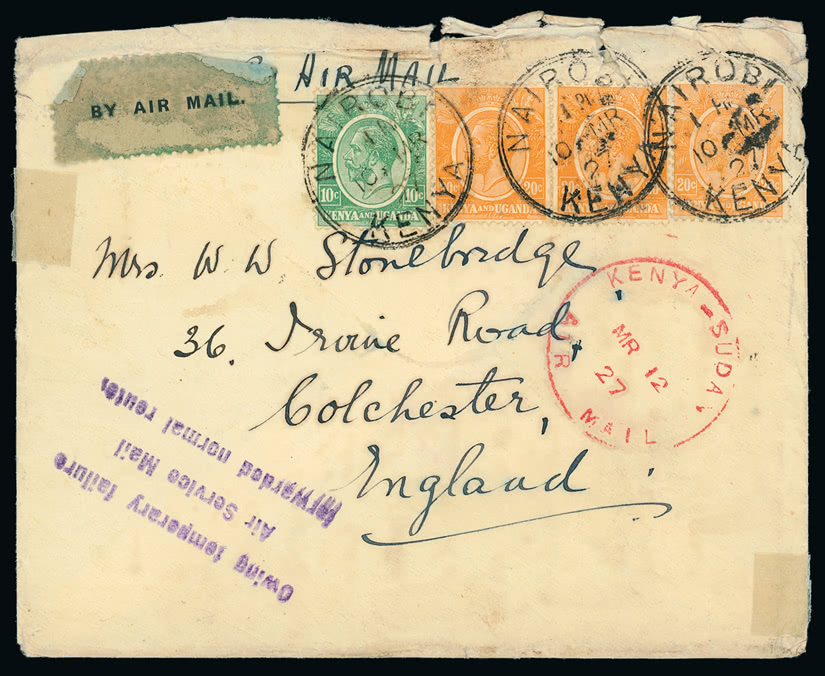 BY AIR MAIL.
AIR MAIL
NAIROBI
1 PM
10 MR
27
KENYA
NAIROBI
1 PM
10 MR
27
KENYA
NAIROBI
1 PM
10 MR
27
KENYA
10c 10c
KENYA AND UGANDA
20c
KENYA AND UGANDA
20c
Mrs. W. W. Stonebridge,
36. Irvine Road,
Colchester,
England.
KENYA-SUDAN
AIR MAIL
MR 12
27
Owing temperary failure
Air Service Mail
forwarded normal route.